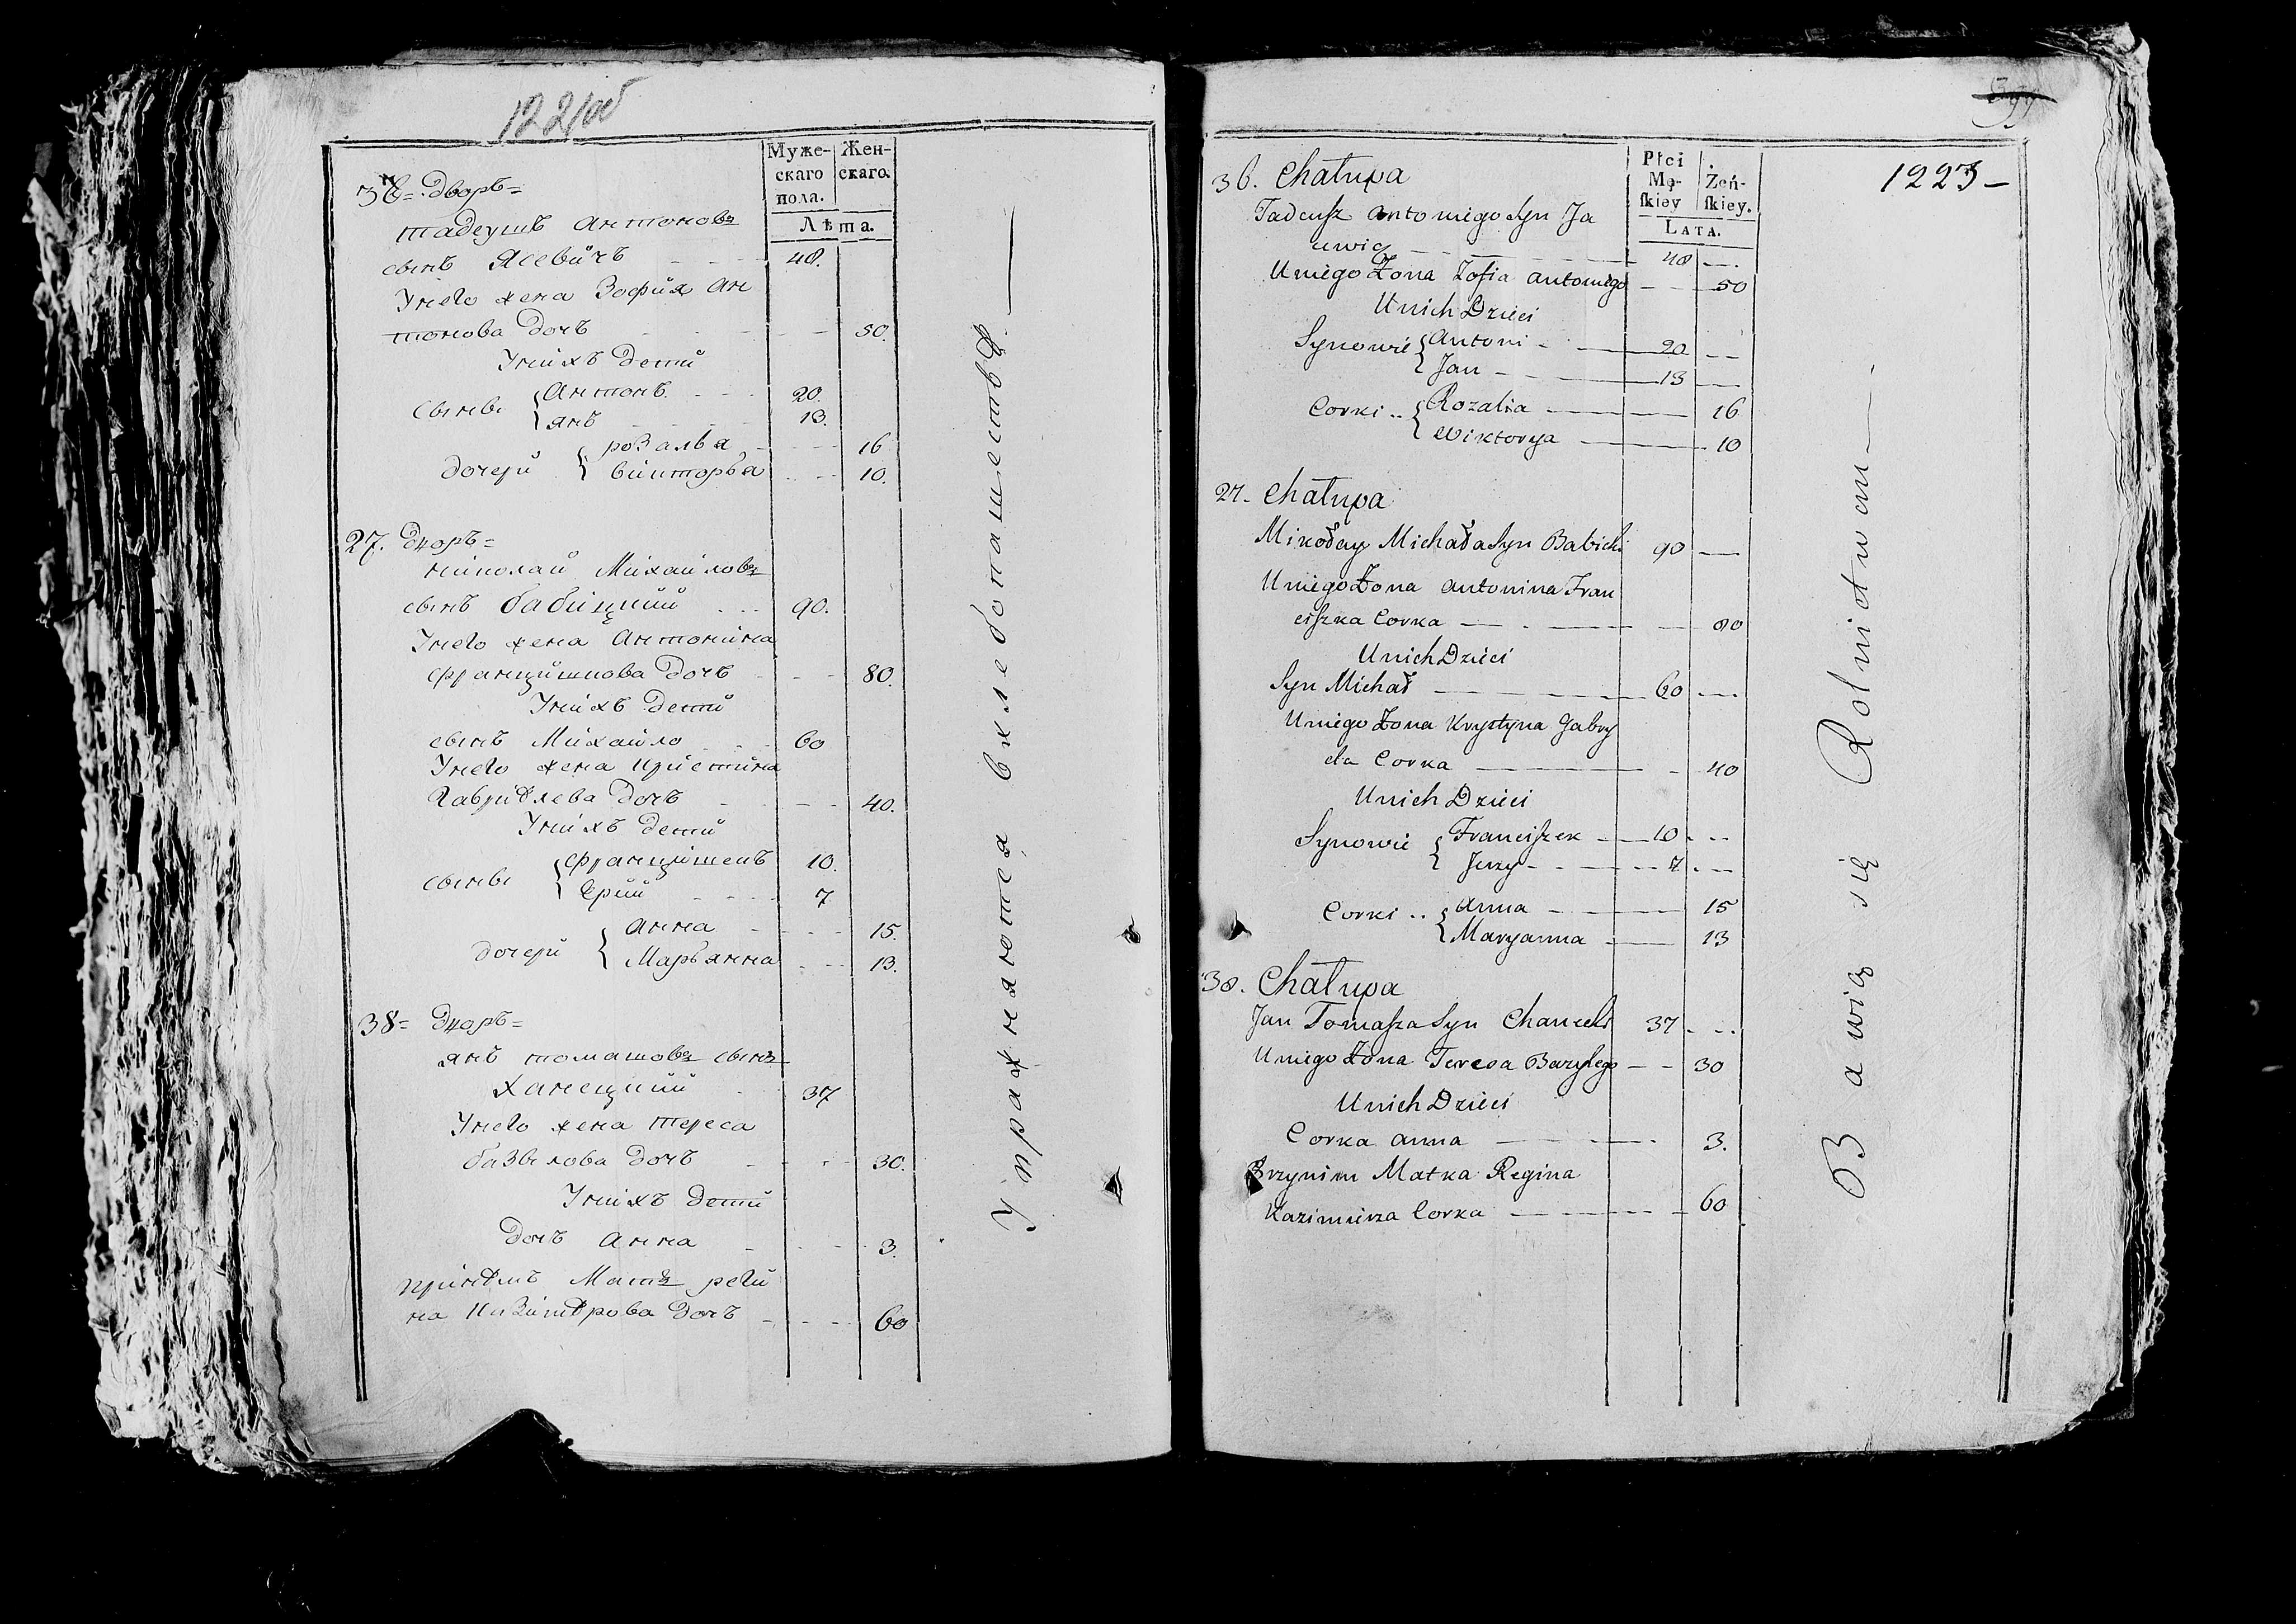 122 об
Муже-
скаго
пола.
Жен-
скаго.
Лѣта.
36= дворъ=
тадеушъ Антоновъ
сынъ Ясевичъ 48.
Унего жена Зофия Ан
тонова дочь 50.
Унихъ дети
сынвь { Антонъ 20.
янъ 13.
дочери { розалья 16
викторья 10.
27. дворъ=
николай Михайловъ
сынъ бабицкий 90.
Унего жена Антонина
францишкова дочь 80.
Унихъ дети
сынъ Михайло 60
Унего жена кристина
Гавриѣлева дочь 40.
Унихъ дети
сынвь { францишекъ 10.
Ерий 7
дочери { Анна 15.
Марьянна 13.
38= дворъ=
янъ томашовъ сынъ
Ханецкий 37
Унего жена тереса
базылова дочь 30.
Унихъ дети
дочь Анна 3.
принѣмъ Мать реги
на казимѣрова дочь 60
Упражняются вхлебопашествѣ
1223
36. Chałupa
Płci
Mę-
skiey
Żeń-
skiey.
LATA.
Tadeusz Antoniego Syn Ja
sewicz 48
Uniego Żona Zofia Antoniego 50
Unich Dzieci
Synowie { Antoni 20
Jan 13
Corki { Rozalia 16
Wiktorya 10
27. Chałupa
Mikołay Michała Syn Babicki 90
Uniego Żona Antonina Fran
ciszka Corka 80
Unich Dzieci
Syn Michał 60
Uniego Żona Krystyna Gabry
ela Corka 40
Unich Dzieci
Synowie { Franciszek 10
Jerzy 7
Corki { Anna 15
Maryanna 13
38. Chałupa
Jan Tomasza Syn Chanecki 37
Uniego Żona Teresa Bazylego 30
Unich Dzieci
Corka Anna 3.
Przynim Matka Regina
Kazimierza Corka 60
Bawią się Rolnictwem